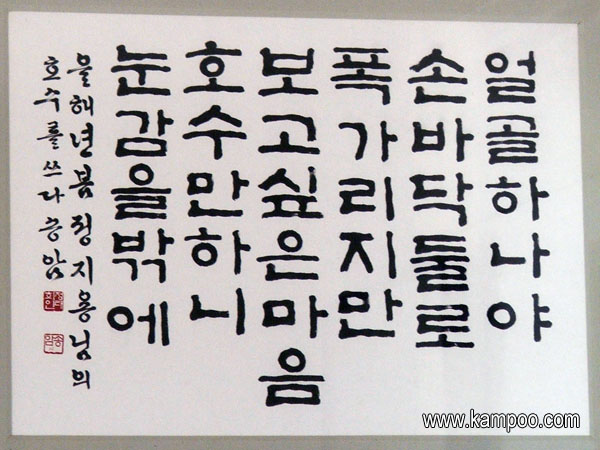 얼골하나야
손바닥둘로
폭가리지만
보고싶은마음
호수만하니
눈감을밖에
을해년봄정지용님의
호수를쓰다
www.kampoo.com